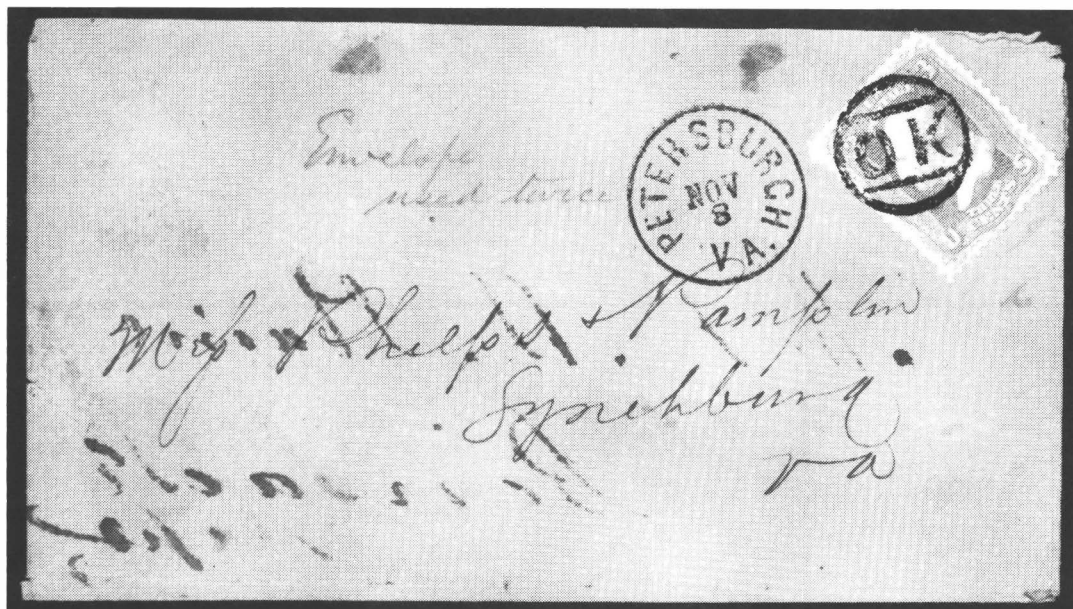 Envelope
used twice
PETERSBURGH
NOV
8
VA.
OK
Phelps &
Lynchburg
Va